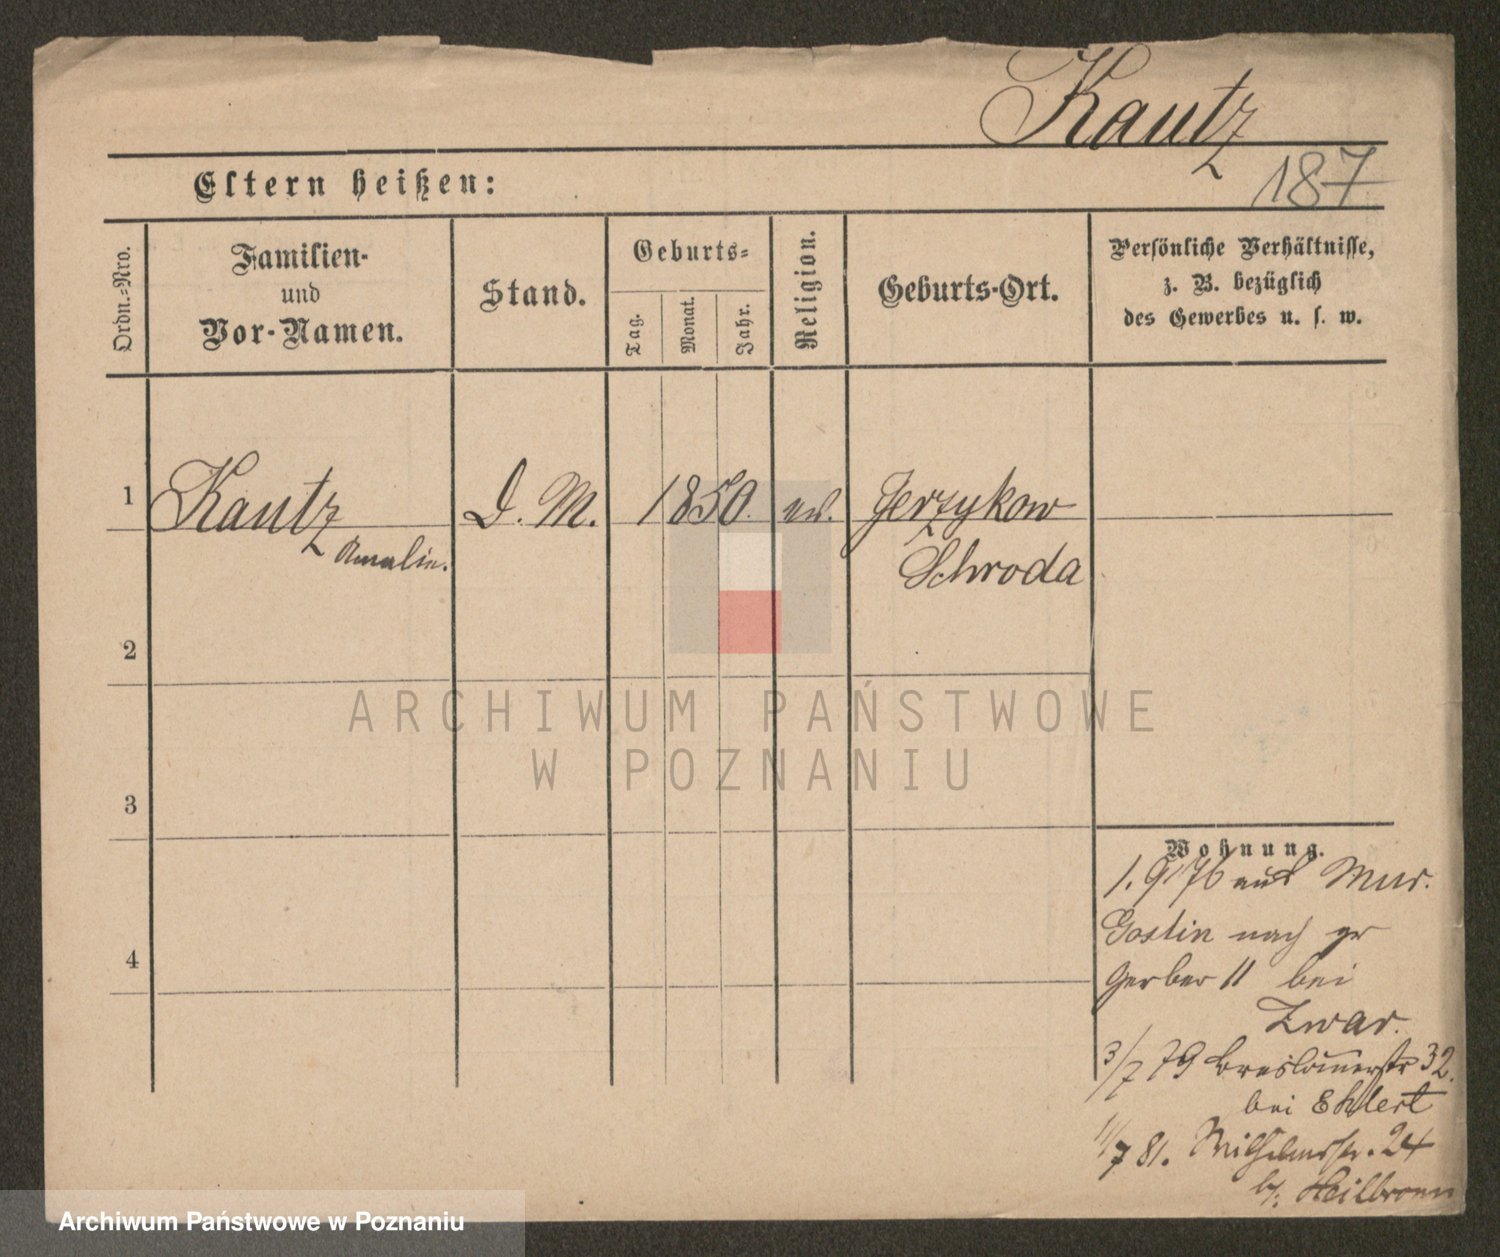 Kautz
187
Eltern heißen:
Ordn.-Nro.
Familien-
und
Vor-Namen.
Stand.
Geburts-
Tag.
Monat.
Jahr.
Religion.
Geburts-Ort.
Persönliche Verhältnisse,
z. B. bezüglich
des Gewerbes u. s. w.
1 Kautz D. M. 1850. ev. Jerzykow
Amalie. Schroda
2
3
4
Wohnung.
1. 9 76 aus Mur.
Goslin nach gr
Gerber 11 bei
Zwar.
3/7 79 Breslauerstr 32.
bei Ehlert
11/7 81. Wilhelmsstr. 24
b. Heilbronn
ARCHIWUM PAŃSTWOWE
W POZNANIU
Archiwum Państwowe w Poznaniu